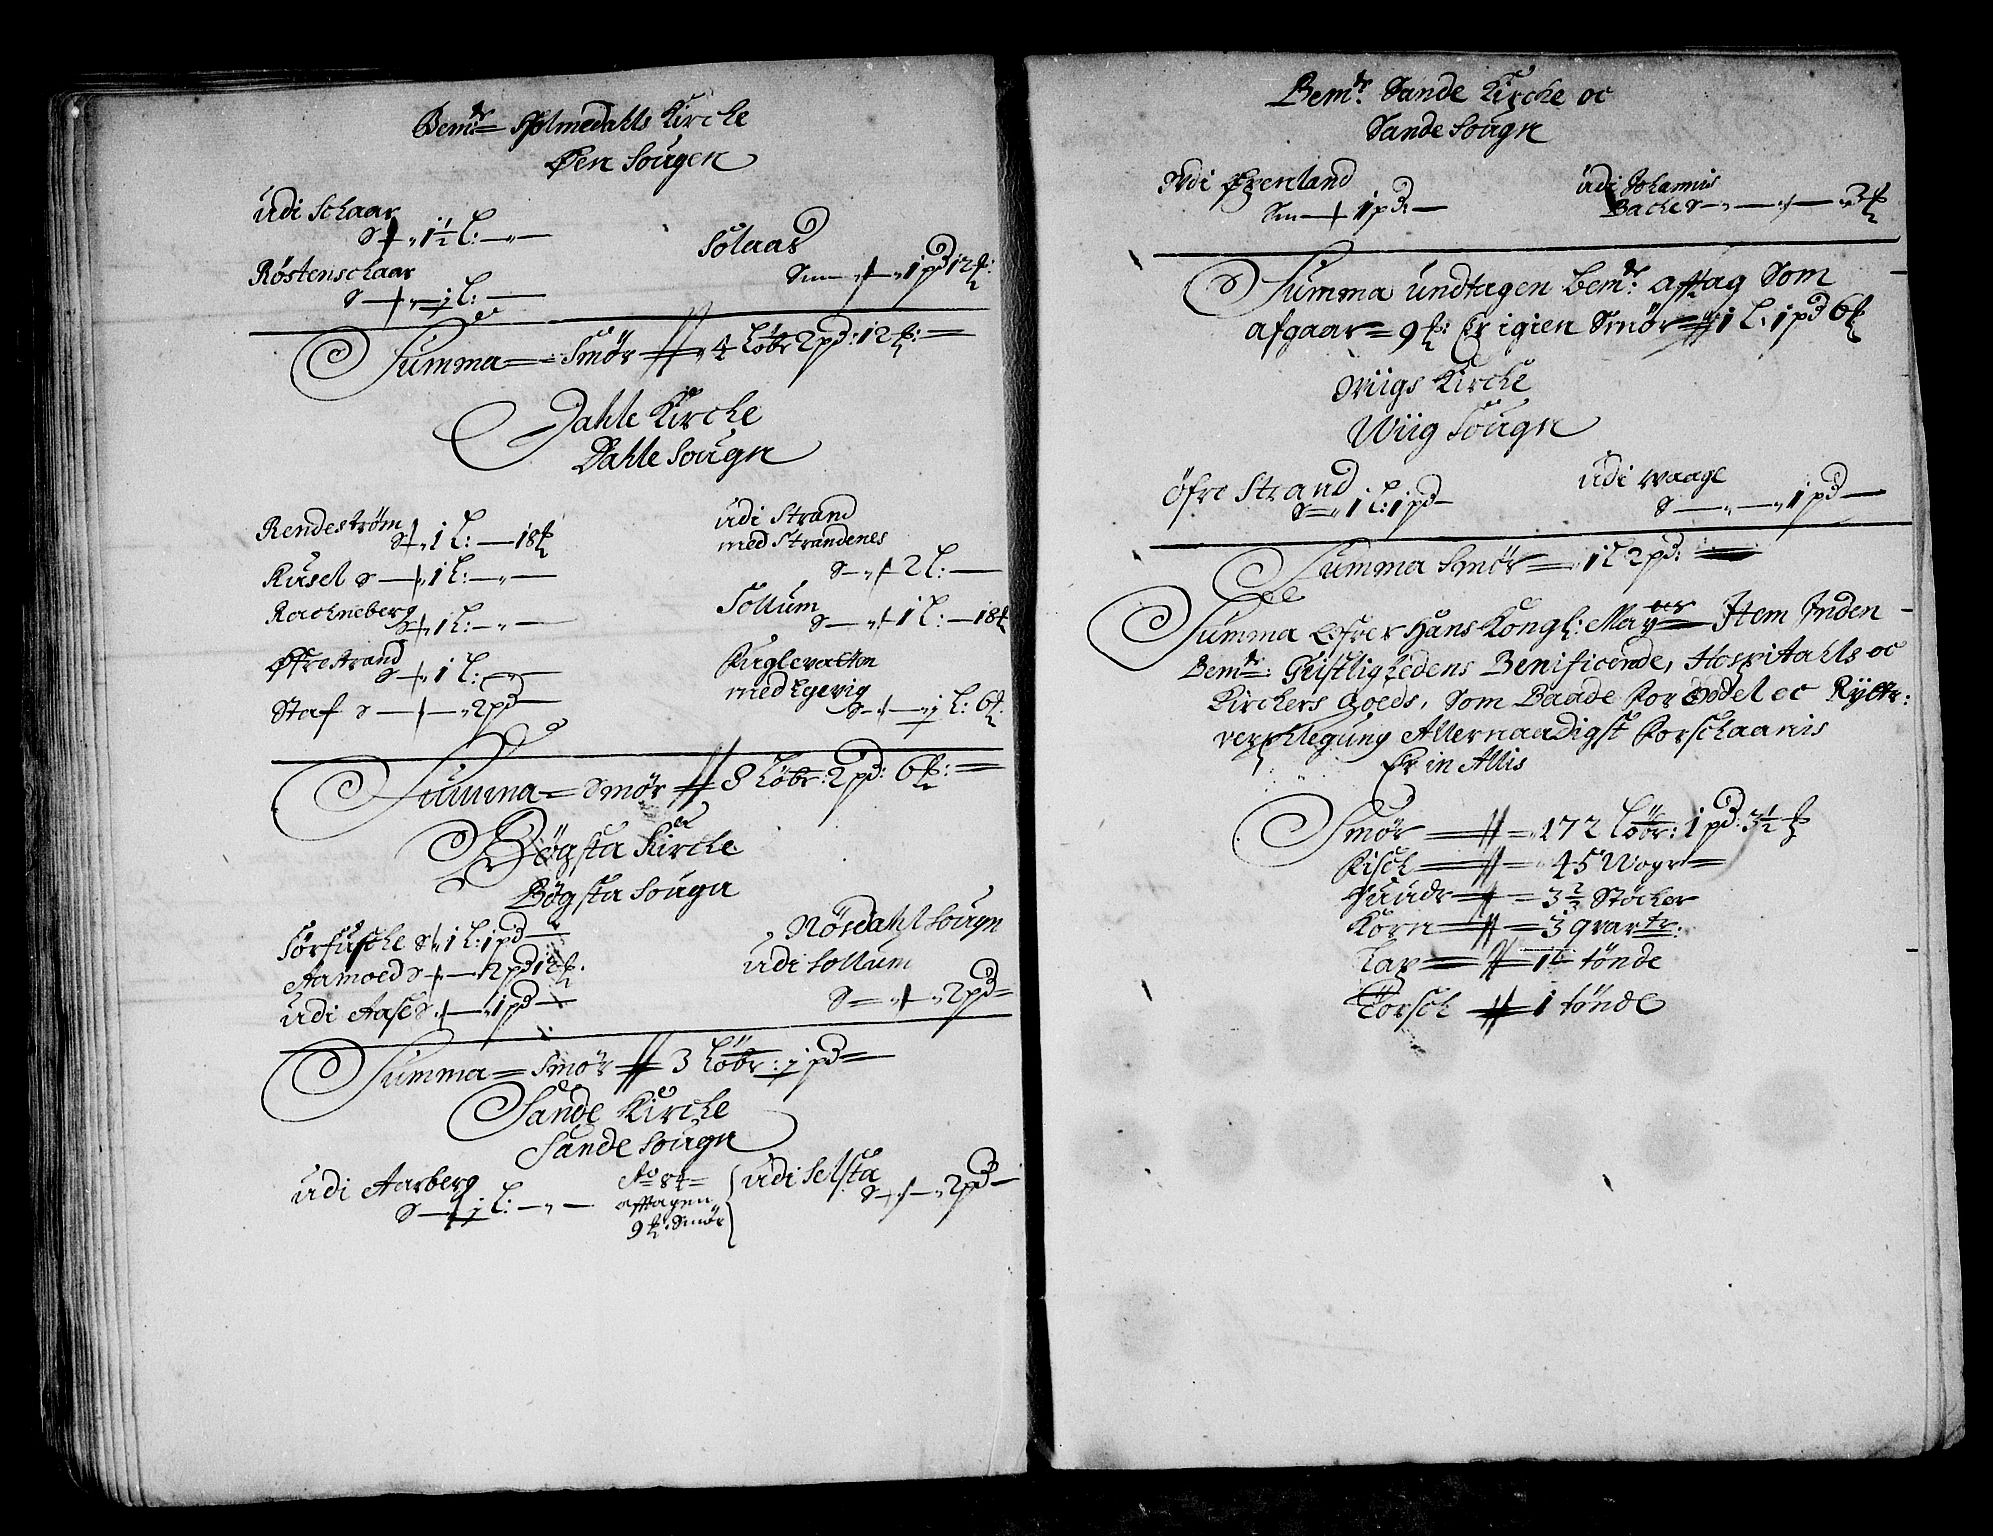 Bemte Holmedahls Kirche
Øen Sougen
Udi Schaar
S — „ 1½ L: — „ —
Røstenschaar
S — 1 L: —
Solaas
Sm — „ — „ 1 pd 12 ℔:
Summa = Smør — 4 Løbr 2 pd: 12 ℔: =
Dahle Kirche
Dahle Sougn
Rendestrøm
S „ 1 L: — 18 ℔
Russel S — „ 1 L: — „ —
Rachneberg
S „ 1 L: — „ —
Øfrestrand
S — „ 1 L: — „ —
Staf S — — „ 2 pd —
Udi Strand
med Strandenes
S — „ — 2 L: —
Sollum
S — „ — 1 L: — 18 ℔
med Egevig
S — — „ 1 L: 6 ℔:
Summa = Smør — 8 Løbr: 2 pd: 6 ℔: =
Bögsta Kirche
Bøgsta Sougn
S 1 L: 1 pd —
Aamoed S — 2 pd 18 ℔.
Udi Aase S — „ 1 pd —
Nösdahl Sougn
Udi Sollum
S = „ — „ 2 pd =
Summa = Smør — 3 Löbr: 1 pd =
Sande Kirche
Sande Sougn
Udi Aarberg
S — 1 L: — „ —
Ao 84 =
afftagen
9 ℔ Smør
Udi Selsta
S — — „ 2 pd —
Bemte Sande Kirche oc
Sande Sougn
Udi Øvenland
Sm — 1 pd: —
Udi Johannis
Bache S — „ — — „ 3 ℔
Summa undtagen bemte afftag Som
afgaar = 9 ℔: Er igien Smør = 1 L: 1 pd 6 ℔
Wiigs Kirche
Wiig Sougn
Öfre Strand
S = „ 1 L: 1 pd —
Udi Waage
S — „ — „ 1 pd —
Summa Smør = „ 1 L 2 pd: —
Summa Efter Hans Kongl: Mayts Item Inden
Bemte: Geistlighedens Benificerede, Hospitahls oc
Kirchers Goeds, Som Baade for Oddel oc Rytter:
verplegung Allernaadigst forschaanis
Er in Allis
Smør — = „ 172 Löbr: 1 pd: 3½ ℔
Fisch — — „ 45 Wogr —
Huudr — = 3½ Støcher
Korn — = 3 qvartr:
Tax — = 1½ tønde
Torsch — 1 tønde